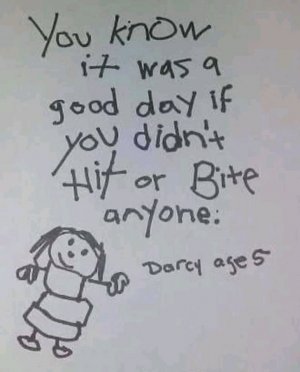 You know
it was a
good day if
you didn't
Hit or Bite
anyone.
Darcy age 5